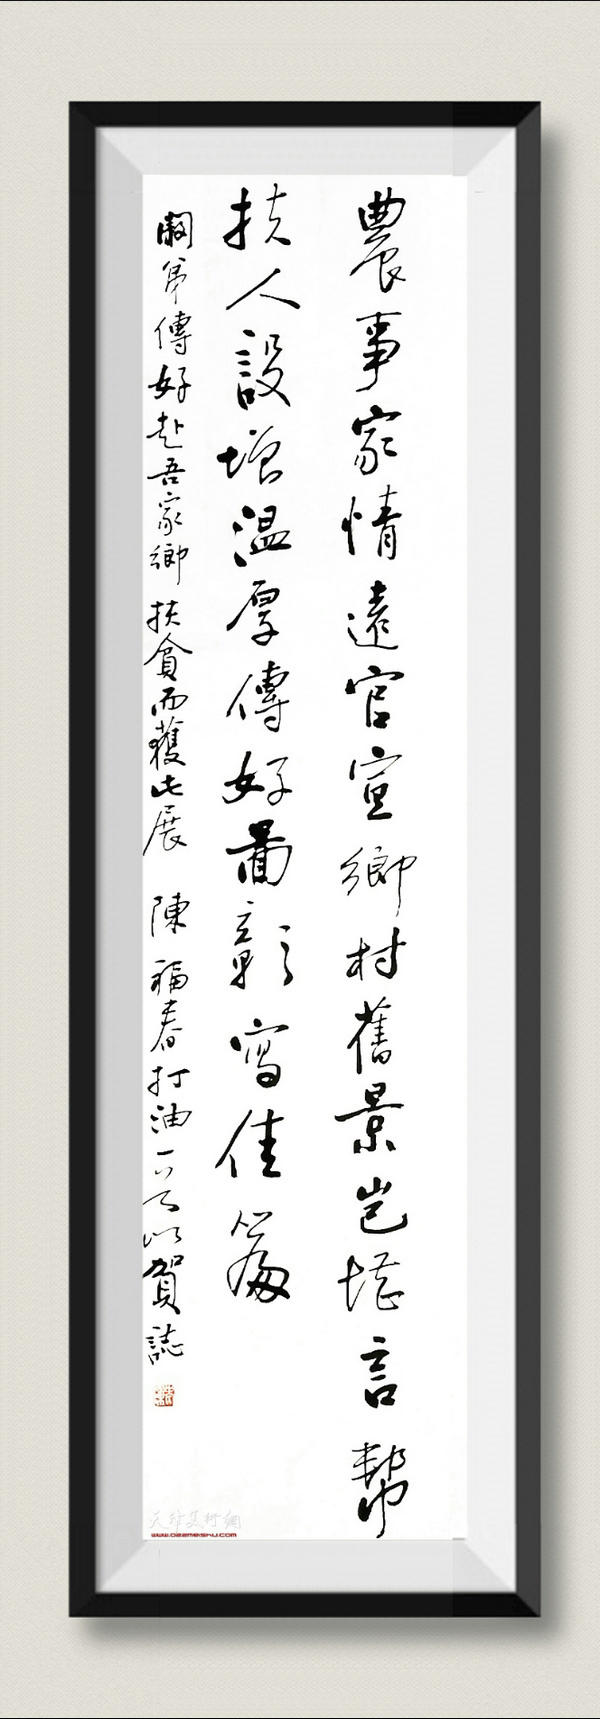 農事家情遠官宣鄉村舊景豈堪言幫
扶人設增溫厚傳好圖彰寫佳篇
弟傳好赴吾家鄉扶貧而獲此展 陳福春打油一首以賀誌
天津美術網
www.022meishu.com